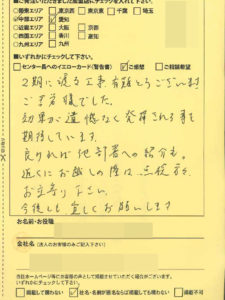 ■ご発注いただきました施工店のエリアにチェックを入れて下さい
□関東エリア □東京 □東京東 □千葉 □埼玉
☑中部エリア ☑愛知
□近畿エリア □大阪 □京都
□四国エリア □香川 □愛媛
□九州エリア □九州
■いずれかにチェックして下さい
□センター長へのイエローカード(警告) ☑ご感想 □ご相談要望
2期に渡る工事、有難とうございます
ご苦労様でした。
効果が遺憾なく発揮される事を
期待しています。
良ければ他部署への紹介も。
近くにお越しの際は、
お立寄り下さい。
今後も宜しくお願いします
お名前・お役職
会社名 (法人のお客様のみご記入下さい)
当社ホームページ等にお客様の声として掲載させていただく場合がございます。
いずれかにチェックをお付け下さい
□掲載して構わない ☑社名・名前が匿名ならば掲載しても構わない □掲載不可